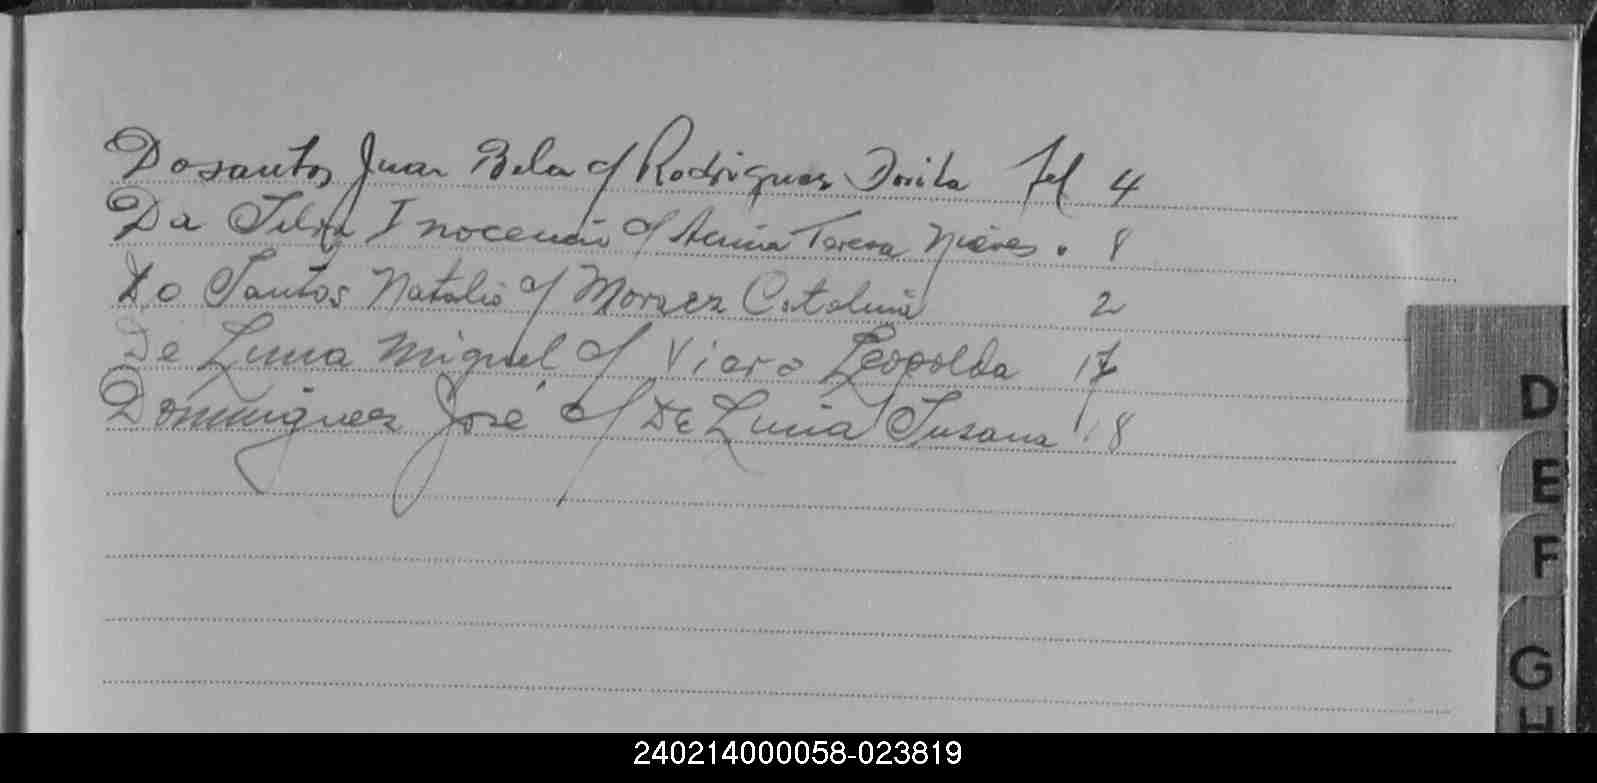 Dosantos Juan Bela c/ Rodriguez Dorila Fol 4
Da Silva Inocencio c/ Acuña Teresa Nieves . 8
Do Santos Natalio c/ Moraez Catalina 2
De Luna Miguel c/ Viera Leopolda 17
Dominguez José c/ De Luna Susana 18
D
E
F
G
H
240214000058-023819